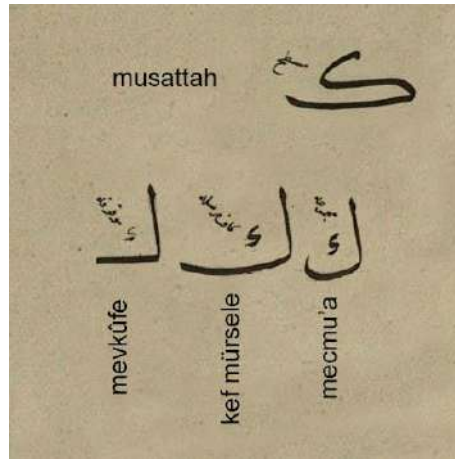 musattah
ك
ك ك ك
mevkûfe
kef mürsele
mecmu'a